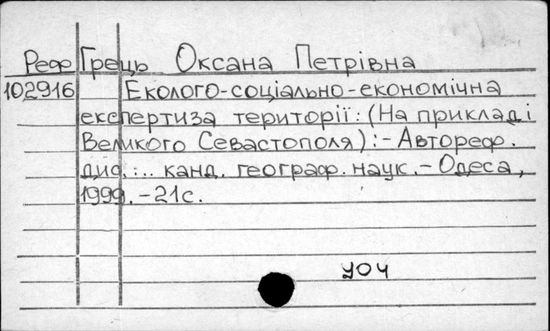 Реф Грець Оксана Петрівна
102916 Еколого-соціально-економічна
експертиза території: (На прикладі
Великого Севастополя):- Автореф.
дис.:.. канд. географ. наук.- Одеса,
1999.-21с.
УОЧ